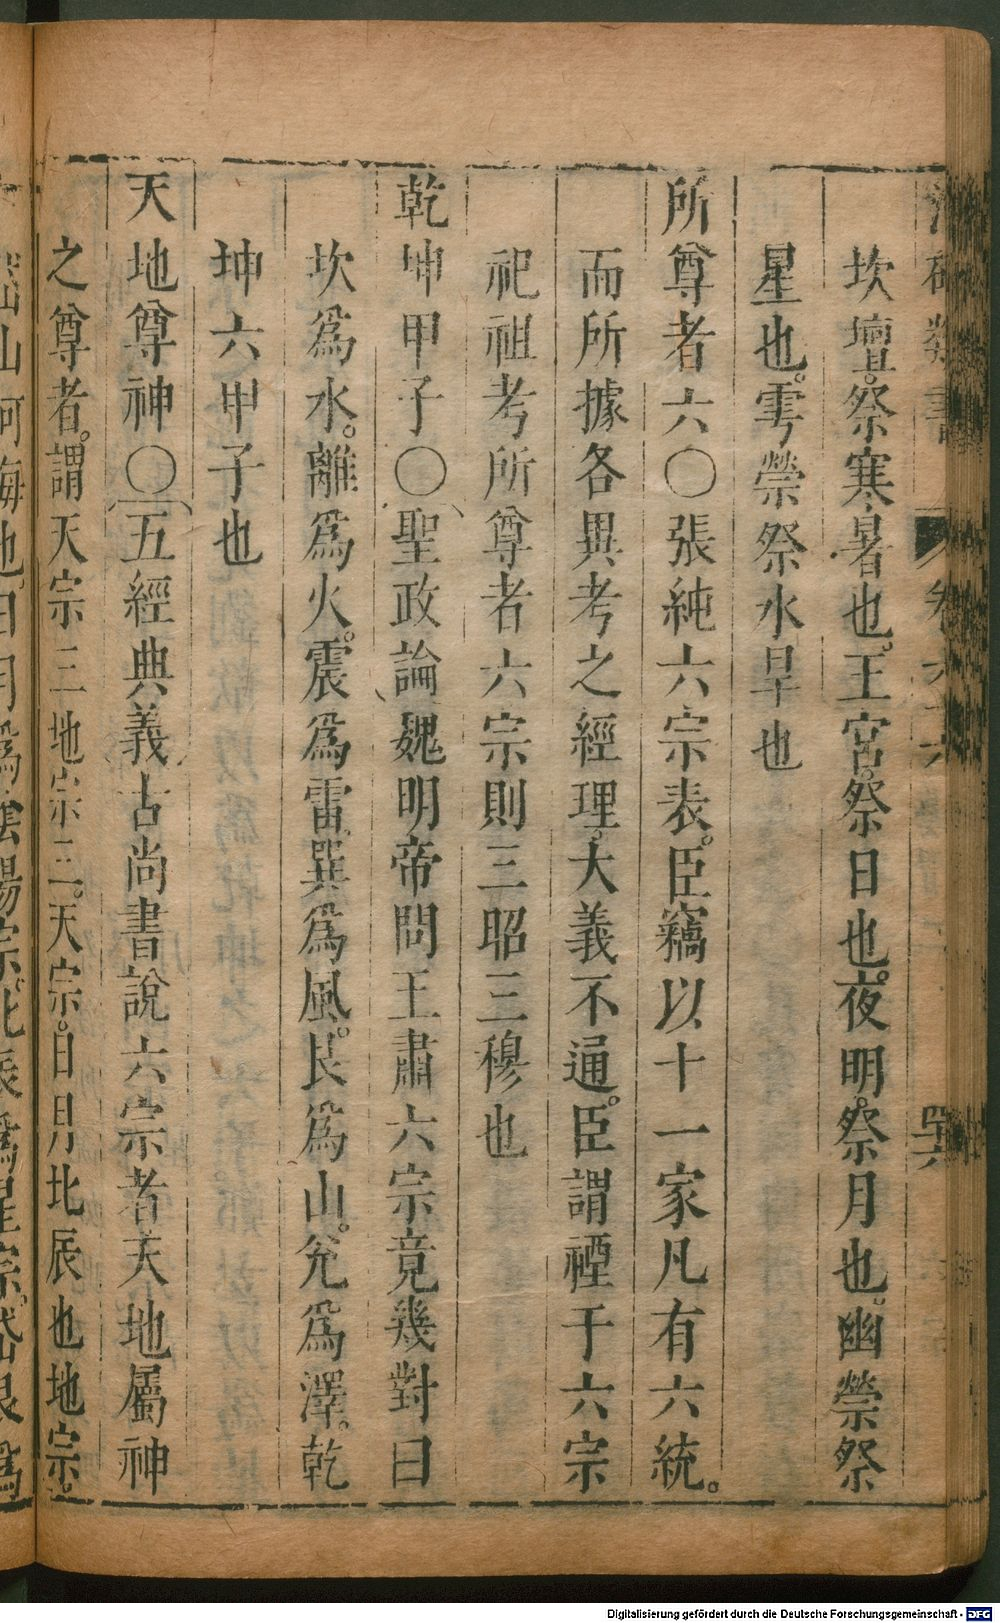 類書 卷六十六 四六
坎壇。祭寒暑也。王宮。祭日也。夜明。祭月也。幽禜祭
星也。雩禜祭水旱也
所尊者六〇張純六宗表。臣竊以十一家凡有六統。
而所據各異考之經理。大義不通。臣謂禋于六宗
祀祖考所尊者六宗則三昭三穆也
乾坤甲子〇聖政論魏明帝問王肅六宗竟幾對曰
坎為水。離為火。震為雷。巽為風。艮為山。兌為澤。乾
坤六甲子也
天地尊神〇五經典義古尚書說六宗者天地屬神
之尊者。謂天宗三地宗三。天宗。日月北辰也地宗。
岱山河海也日月為陰陽宗。北辰為星宗。岱山艮為
Digitalisierung gefördert durch die Deutsche Forschungsgemeinschaft - DFG